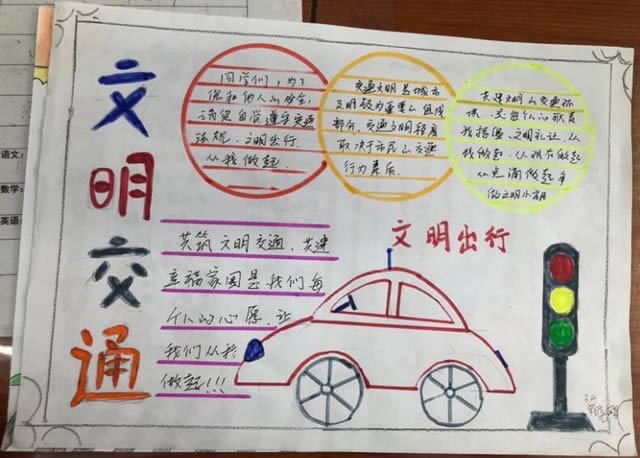 文明交通
同学们，为了
您和他人的安全，
请您自觉遵守交通
法规，文明出行，
从我做起.
交通文明是城市
文明极为重要的组成
部分，交通文明程度
取决于市民的交通
行为素质.
共建文明的交通环
境，是每个人的职责
我提倡，文明礼让，从
我做起，从现在做起
从点滴做起争
做文明小
共筑文明交通，共建
幸福家园是我们每
个人的心愿，让
我们从我
做起!!!
文明出行
语文：
数学：
英语